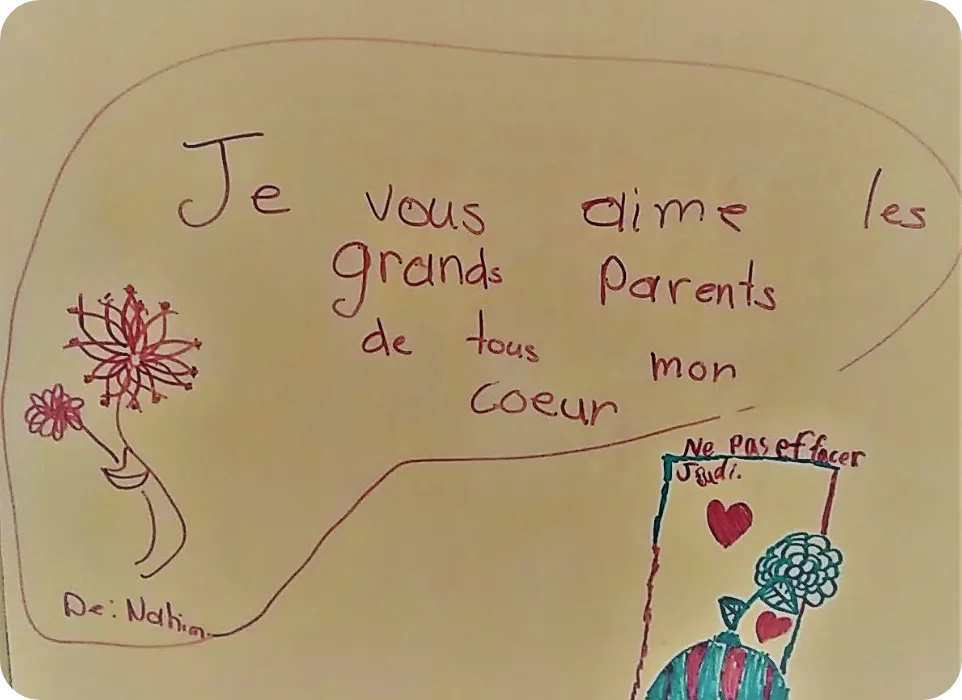 Je vous aime les
grands Parents
de tous mon
coeur
De: Nahim
Ne pas effacer
Jeudi.